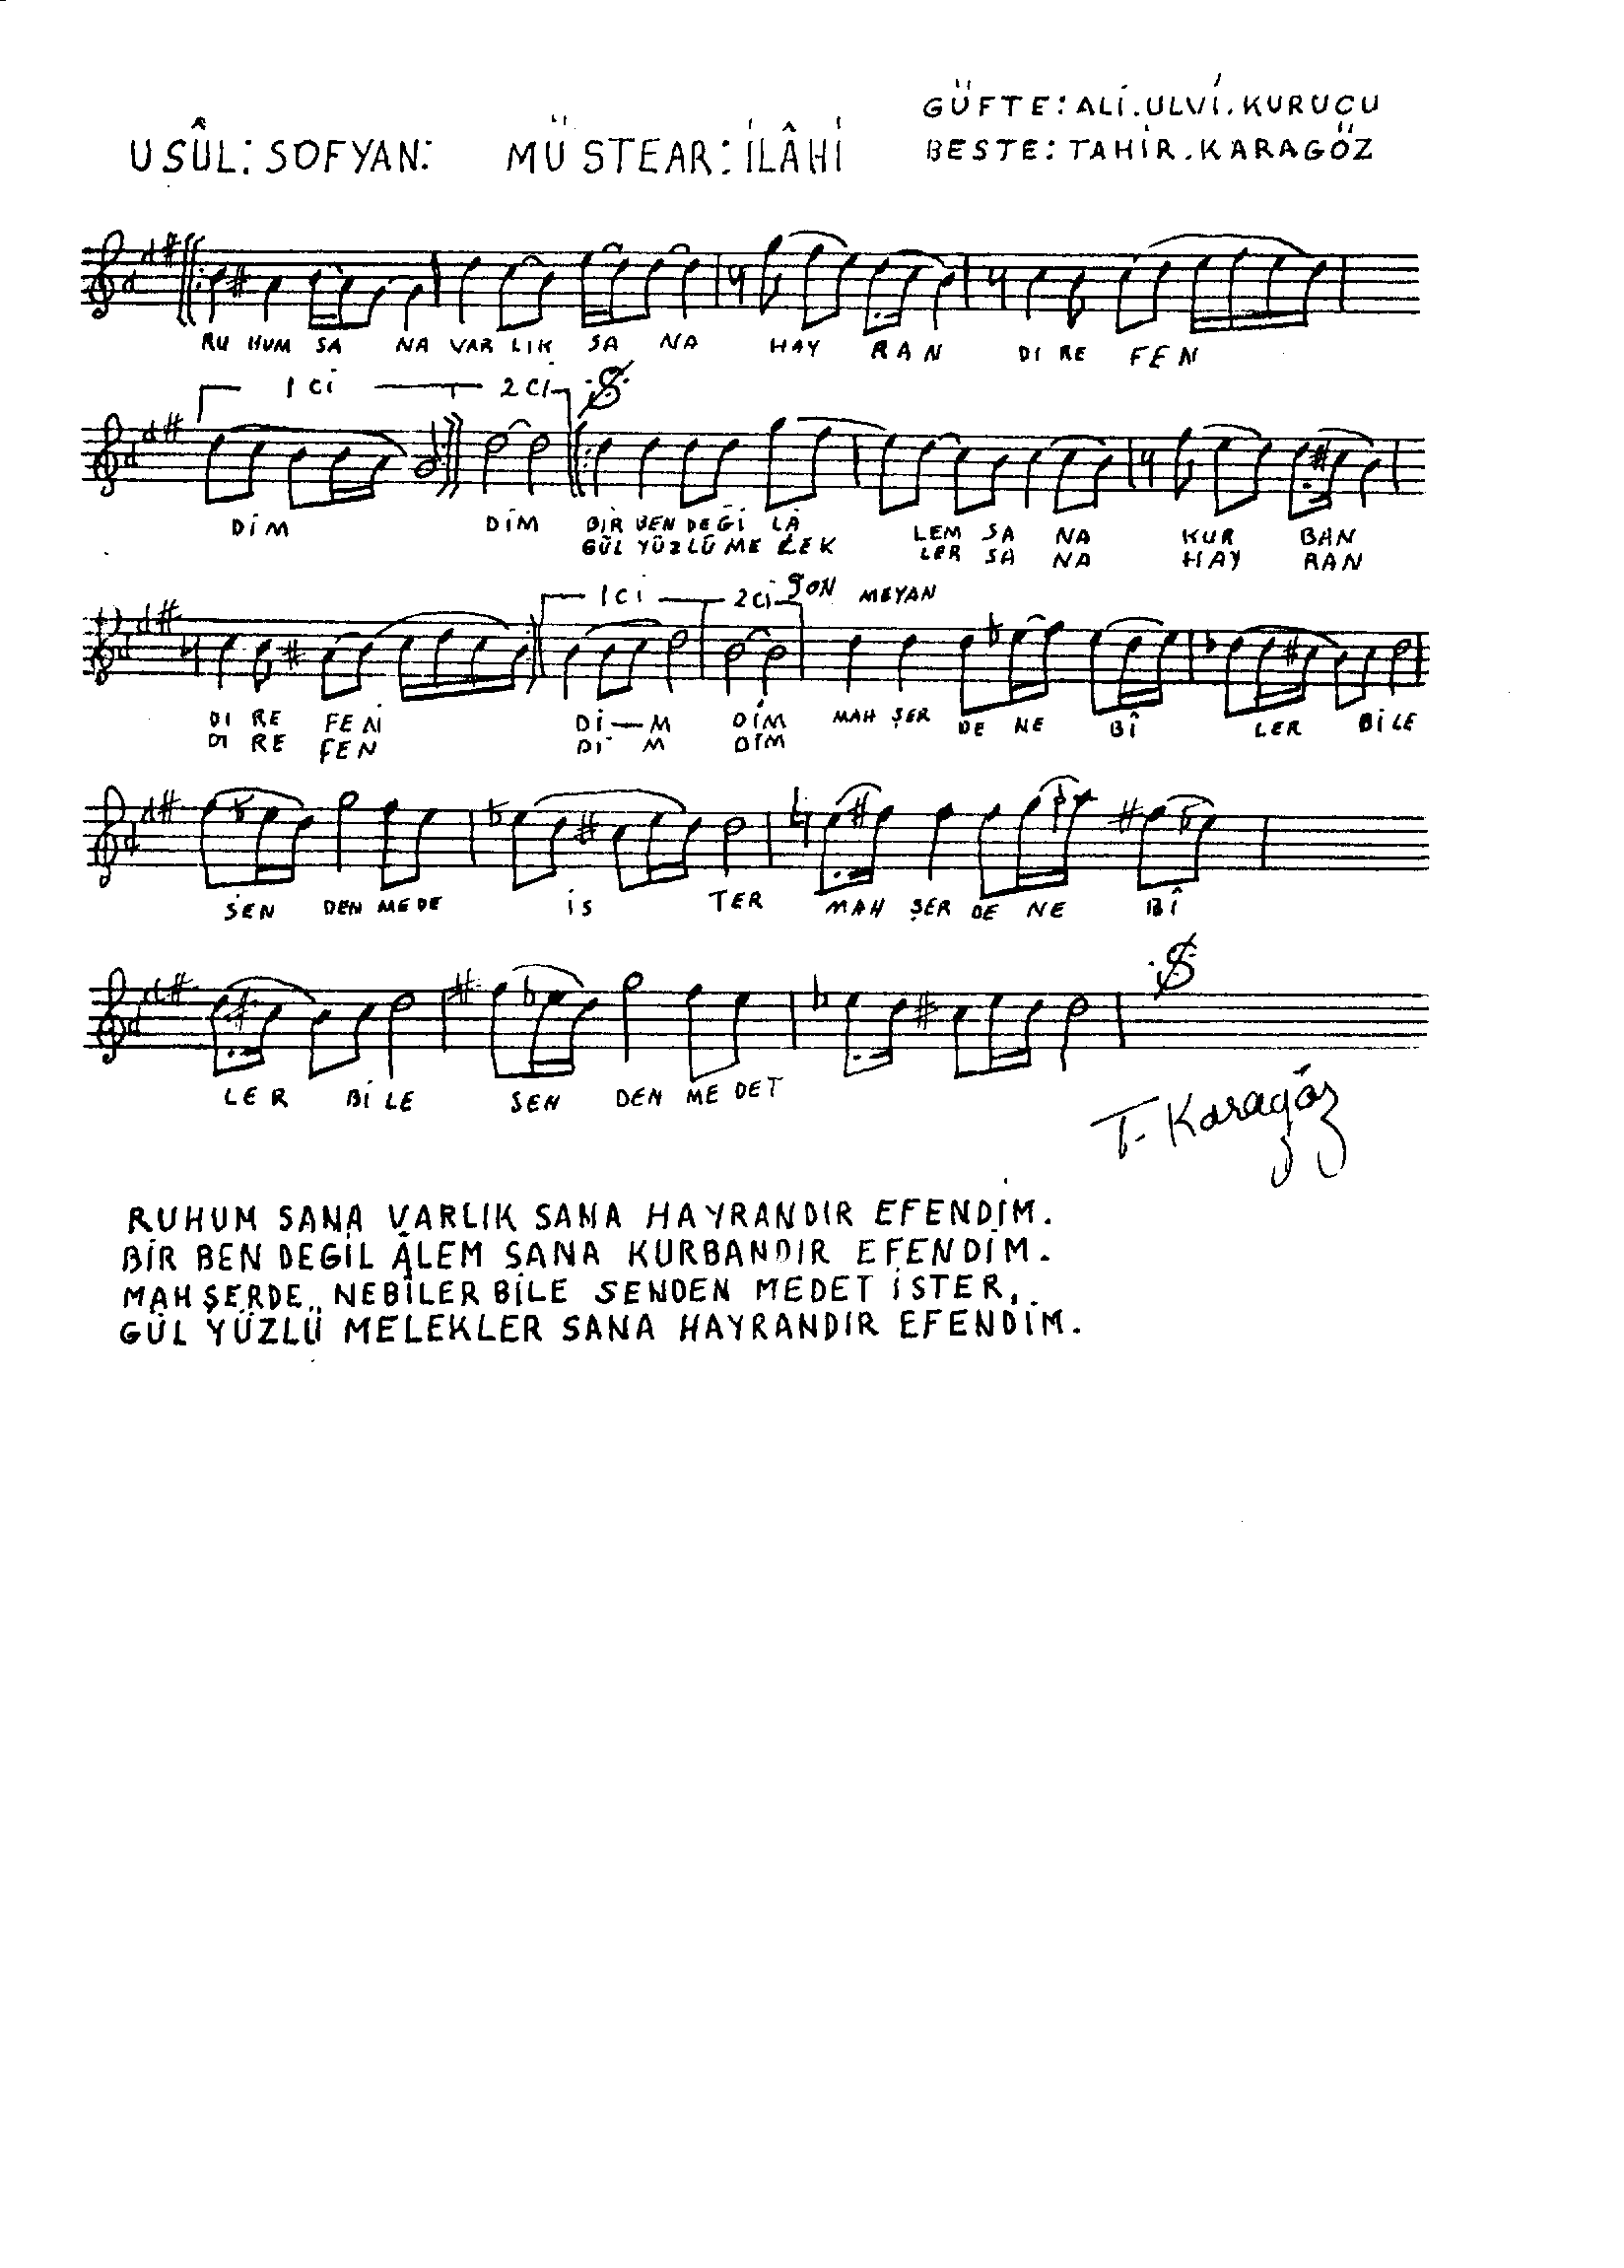 GÜFTE: ALİ. ULVİ. KURUCU
USÛL: SOFYAN: MÜSTEAR: İLÂHİ BESTE: TAHİR. KARAGÖZ
RU HUM SA NA VAR LIK SA NA HAY RAN DI RE FEN
1 Cİ 2 Cİ
DİM DİM BİR BEN DEĞİ LÂ LEM SA NA KUR BAN
GÜL YÜZLÜ ME LEK LER SA NA HAY RAN
1 Cİ 2 Cİ SON MEYAN
DI RE FEN Dİ—M DİM MAH ŞER DE NE BÎ LER BİLE
DI RE FEN Dİ M DİM
SEN DEN MEDE İS TER MAH ŞER DE NE BÎ
LER BİLE SEN DEN ME DET
T. Karagöz
RUHUM SANA VARLIK SANA HAYRANDIR EFENDİM.
BİR BEN DEGİL ÂLEM SANA KURBANDIR EFENDİM.
MAHŞERDE NEBÎLER BİLE SENDEN MEDET İSTER,
GÜL YÜZLÜ MELEKLER SANA HAYRANDIR EFENDİM.